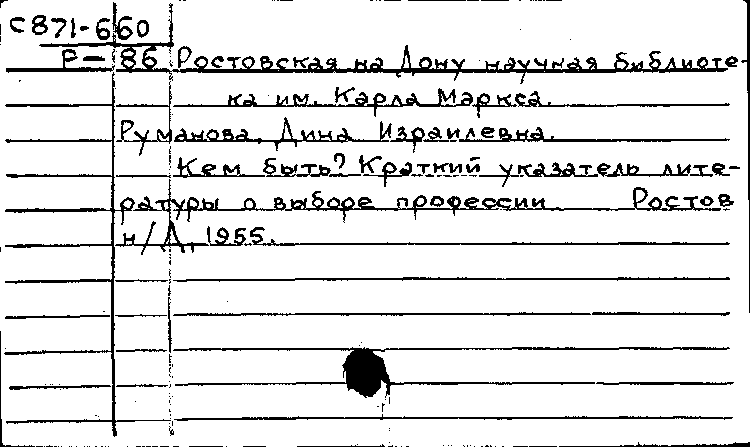 С871-660
Р-86 Ростовская на Дону научная библиоте-
ка им. Карла Маркса.
Руманова, Дина Израилевна.
Кем быть? Краткий указатель лите-
ратуры о выборе профессии Ростов
н/Д, 1955.